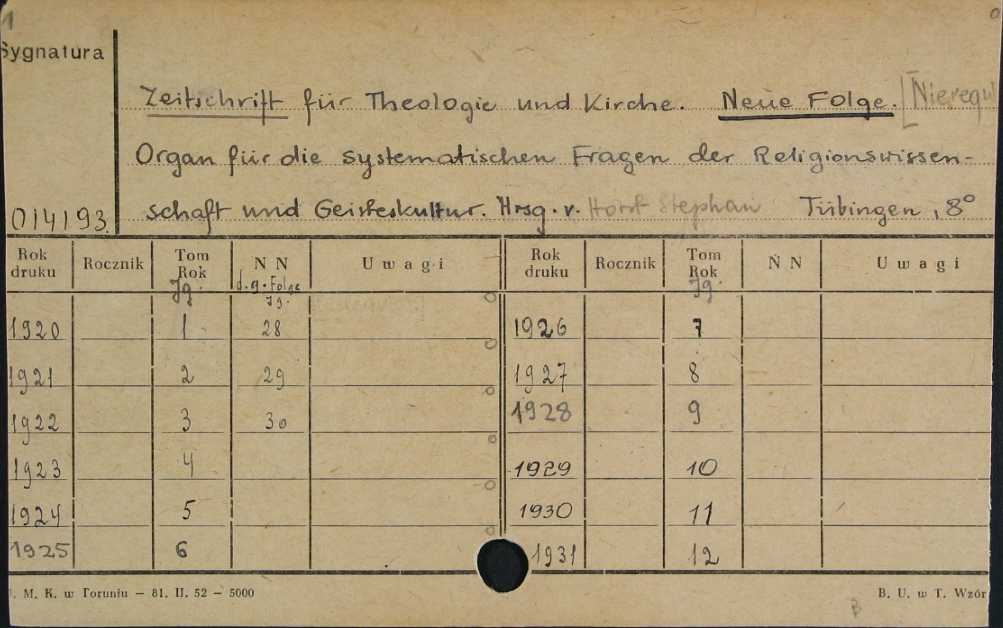 1
Sygnatura
Zeitschrift für Theologie und Kirche. Neue Folge. [Nieregul
Organ für die systematischen Fragen der Religionswissen-
014193 schaft und Geisteskultur. Hrsg. v. Horst Stephan Tübingen, 8°
Rok druku Rocznik Tom Rok Jg. N N d. g. Folge Jg. Uwagi Rok druku Rocznik Tom Rok Jg. N N Uwagi
1920 1 28 1926 7
1921 2 29 1927 8
1922 3 30 1928 9
1923 4 1929 10
1924 5 1930 11
1925 6 1931 12
. M. K. w Toruniu — 81. II. 52 — 5000 B. U. w T. Wzór
B